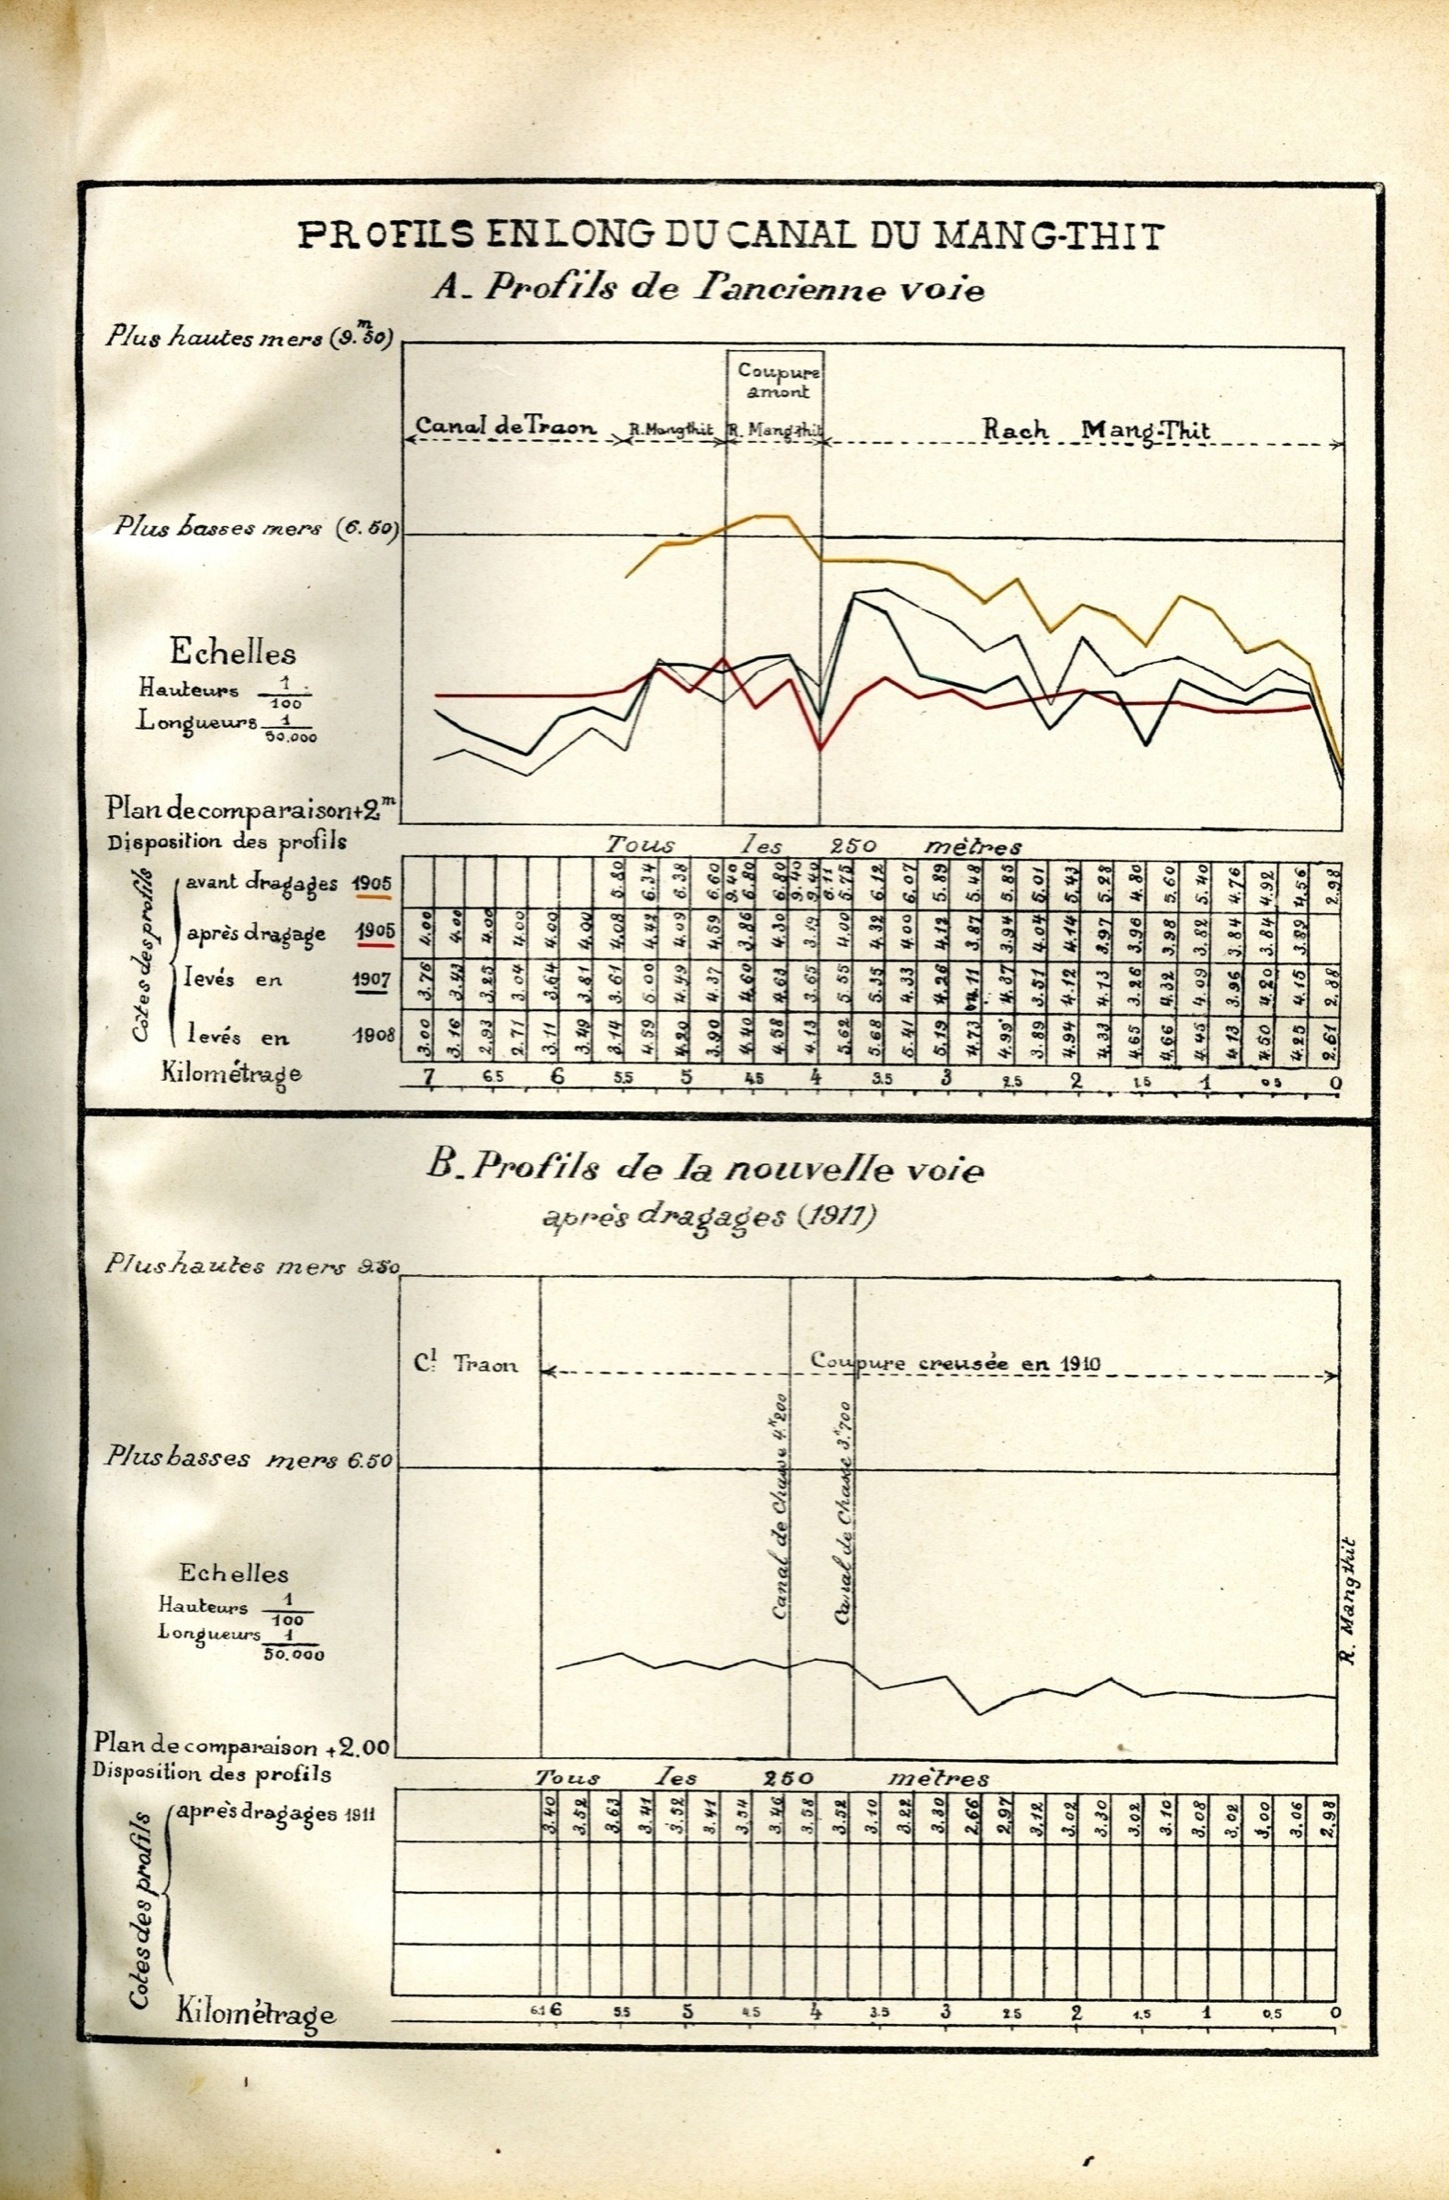 PROFILS EN LONG DU CANAL DU MANG-THIT
A_ Profils de l'ancienne voie
Plus hautes mers (9.m50)
Coupure
amont
Canal de Traon R. Mangthit R. Mang-thit Rach Mang-Thit
Plus basses mers (6.50)
Echelles
Hauteurs 1/100
Longueurs 1/50.000
Plan de comparaison +2m
Disposition des profils Tous les 250 mètres
Cotes des profils
avant dragages 1905 5.80 6.34 6.38 6.60 9.40 6.80 6.80 9.40 9.40 6.11 6.12 6.07 5.89 5.48 5.85 5.43 5.28 4.80 5.60 5.40 4.76 4.92 4.56 2.98
après dragage 1905 4.00 4.00 4.00 4.00 4.00 4.00 4.08 4.42 4.09 4.59 3.86 4.30 3.19 4.00 4.32 4.00 4.12 3.87 3.94 4.04 4.14 3.97 3.96 3.98 3.82 3.84 3.84 3.89
levés en 1907 3.76 3.43 3.25 3.04 3.64 3.81 3.61 5.00 4.49 4.37 4.60 4.63 3.65 5.55 5.35 4.33 4.26 4.11 4.37 3.51 4.12 4.13 3.26 4.32 4.09 3.96 4.20 4.15 2.88
levés en 1908 3.00 3.16 2.93 2.71 3.11 3.49 3.14 4.59 4.20 3.90 4.40 4.58 4.13 5.62 5.68 5.41 5.19 4.73 4.95 3.89 4.94 4.33 4.65 4.66 4.45 4.13 4.50 4.25 2.61
Kilométrage 7 6.5 6 5.5 5 4.5 4 3.5 3 2.5 2 1.5 1 0.5 0
B_ Profils de la nouvelle voie
après dragages (1911)
Plus hautes mers 9.50
Ct Traon Coupure creusée en 1910
Canal de Chasse 4K200
Canal de Chasse 3K700
Plus basses mers 6.50
R. Mangthit
Echelles
Hauteurs 1/100
Longueurs 1/50.000
Plan de comparaison +2.00
Disposition des profils Tous les 250 mètres
Cotes des profils
après dragages 1911 3.40 3.52 3.63 3.41 3.52 3.41 3.54 3.46 3.58 3.52 3.10 3.22 3.30 2.66 2.97 3.12 3.02 3.30 3.02 3.10 3.08 3.02 3.00 3.06 2.98
Kilométrage 6.1 6 5.5 5 4.5 4 3.5 3 2.5 2 1.5 1 0.5 0